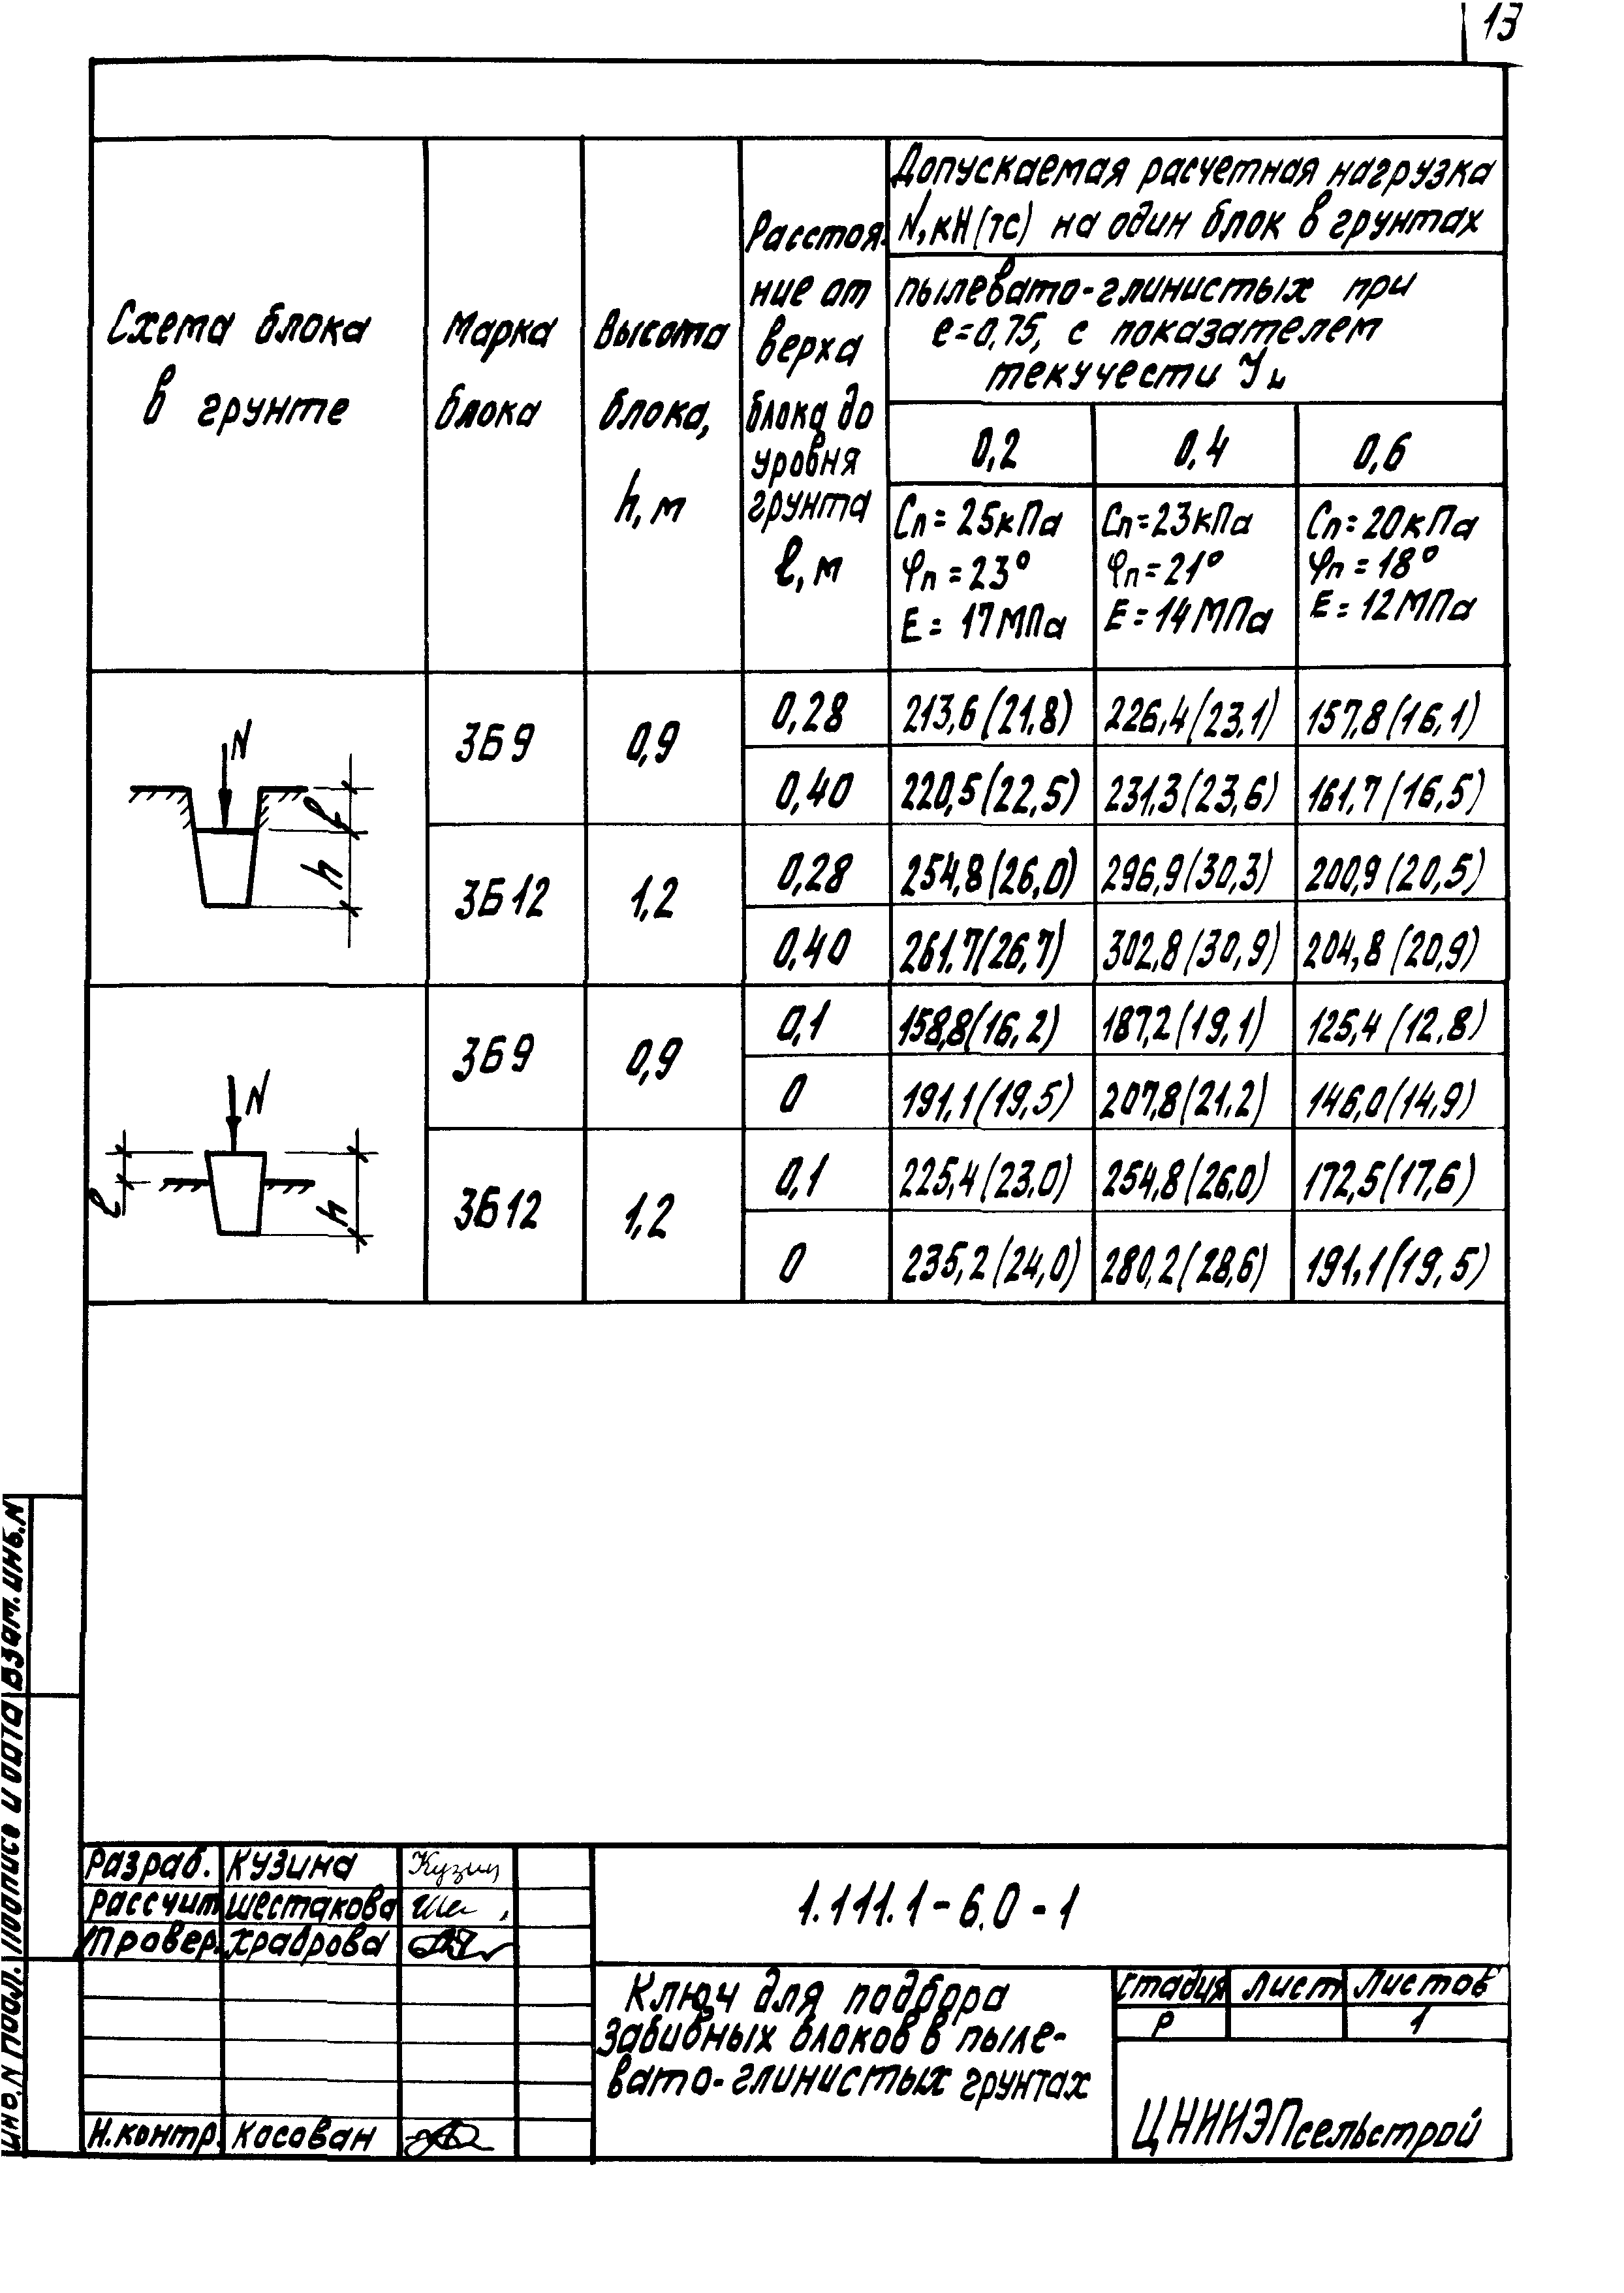 13
Допускаемая расчетная нагрузка
N, кН (тс) на один блок в грунтах
пылевато-глинистых при
e=0,75, с показателем
текучести
Схема блока
в грунте
Марка
блока
Высота
блока,
h, м
Расстоя-
ние от
верха
блока до
уровня
грунта
l, м
0,2
0,4
0,6
Cп = 25 кПа
φп = 23°
E = 17 МПа
Cп = 23 кПа
φп = 21°
E = 14 МПа
Cп = 20 кПа
φп = 18°
E = 12 МПа
N
l
h
ЗБ 9
0,9
0,28 213,6 (21,8) 226,4 (23,1) 157,8 (16,1)
0,40 220,5 (22,5) 231,3 (23,6) 161,7 (16,5)
ЗБ 12
1,2
0,28 254,8 (26,0) 296,9 (30,3) 200,9 (20,5)
0,40 261,7 (26,7) 302,8 (30,9) 204,8 (20,9)
N
l
h
ЗБ 9
0,9
0,1 158,8 (16,2) 187,2 (19,1) 125,4 (12,8)
0 191,1 (19,5) 207,8 (21,2) 146,0 (14,9)
ЗБ 12
1,2
0,1 225,4 (23,0) 254,8 (26,0) 172,5 (17,6)
0 235,2 (24,0) 280,2 (28,6) 191,1 (19,5)
Взам. инв. N
Подпись и дата
Инв. N подл.
Разраб. Кузина Кузин
Рассчит Шестакова Ше
Провер. Храброва
Н.контр. Косован
1.111.1-6.0-1
Ключ для подбора
забивных блоков в пыле-
вато-глинистых грунтах
Стадия Лист Листов
Р 1
ЦНИИЭПсельстрой